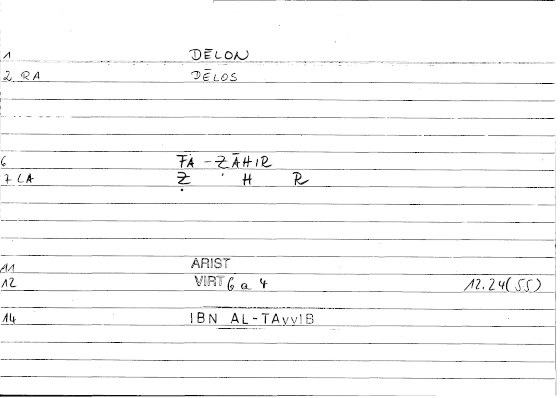 1 DĒLON
2 RA DĒLOS
6 FA - ẒĀHIR
7 LA Ẓ H R
11 ARIST
12 VIRT 6 a 4 12.24(55)
14 IBN AL-TAyyIB